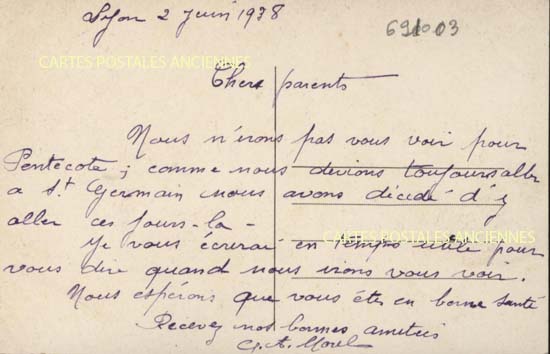 Lyon 2 juin 1938
691003
CARTES POSTALES ANCIENNES
Chers parents
Nous n'irons pas vous voir pour
Pentecote; comme nous devions toujours aller
a St Germain nous avons décidé d'y
aller ces jours-la -
Je vous écrirai en temps utile pour
CARTES POSTALES ANCIENNES
vous dire quand nous irons vous voir.
Nous espérons que vous étes en bonne santé
Recevez nos bonnes amitiés
G. A. Morel